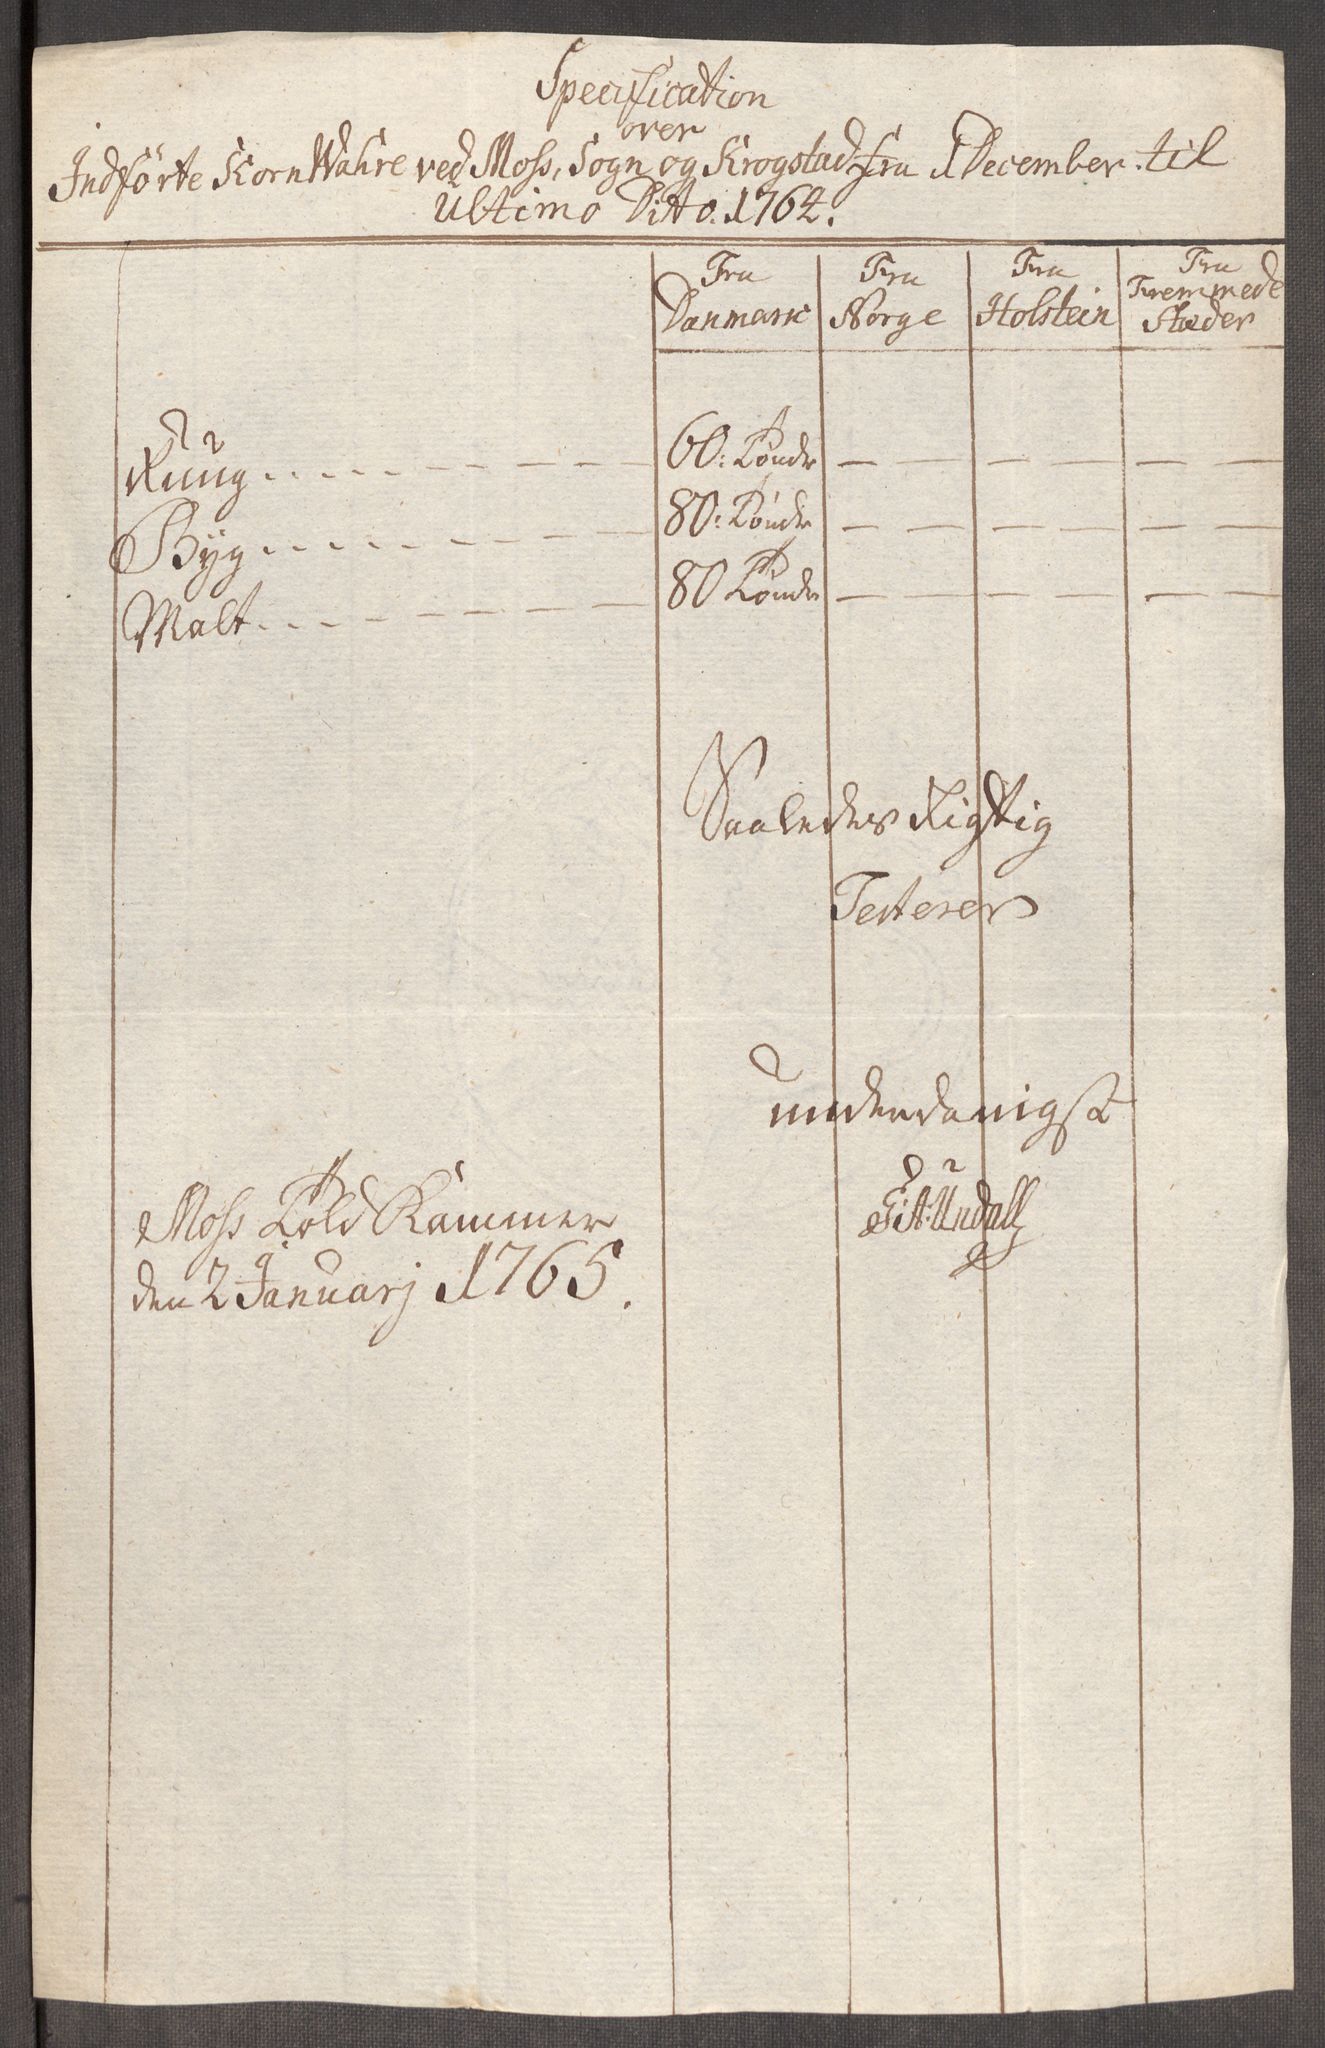 Specification
over
Indförte Korn Wahre ved Moss, Sogn og Krogstad fra 1 December til
Ultimo Ditto. 1764.
Fra Danmark Fra Norge Fra Holstein Fra Fremmede Stæder
Rüüg 60: Tönder — — — — — —
Byg 80: Tönder — — — — — —
Malt 80 Tönder — — — — — —
Saaledes Rigtig
Testerer
underdanigst
Moss Told Kammer
den 2 Januarj 1765.
Undall